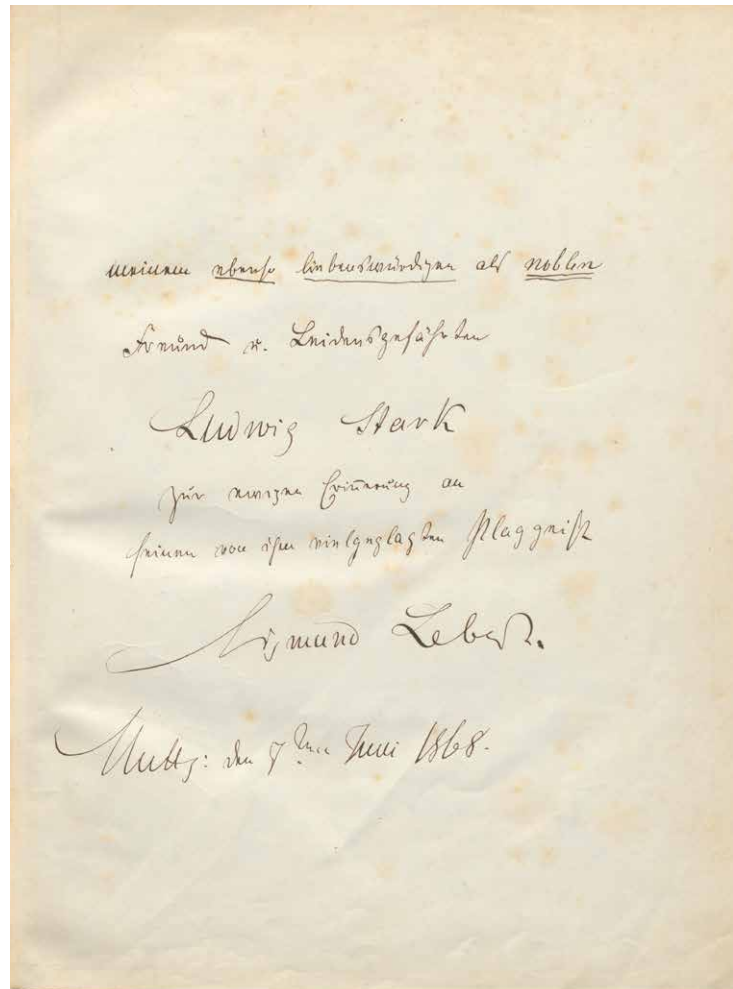 meinem ebenso liebenswürdigen als noblen
Freund u. Leidensgefährten
Ludwig Stark
zur ewigen Erinnerung an
seinen von ihm vielgeplagten Plaggeist
Sigmund Lebert.
Stuttg: den 7ten Juni 1868.